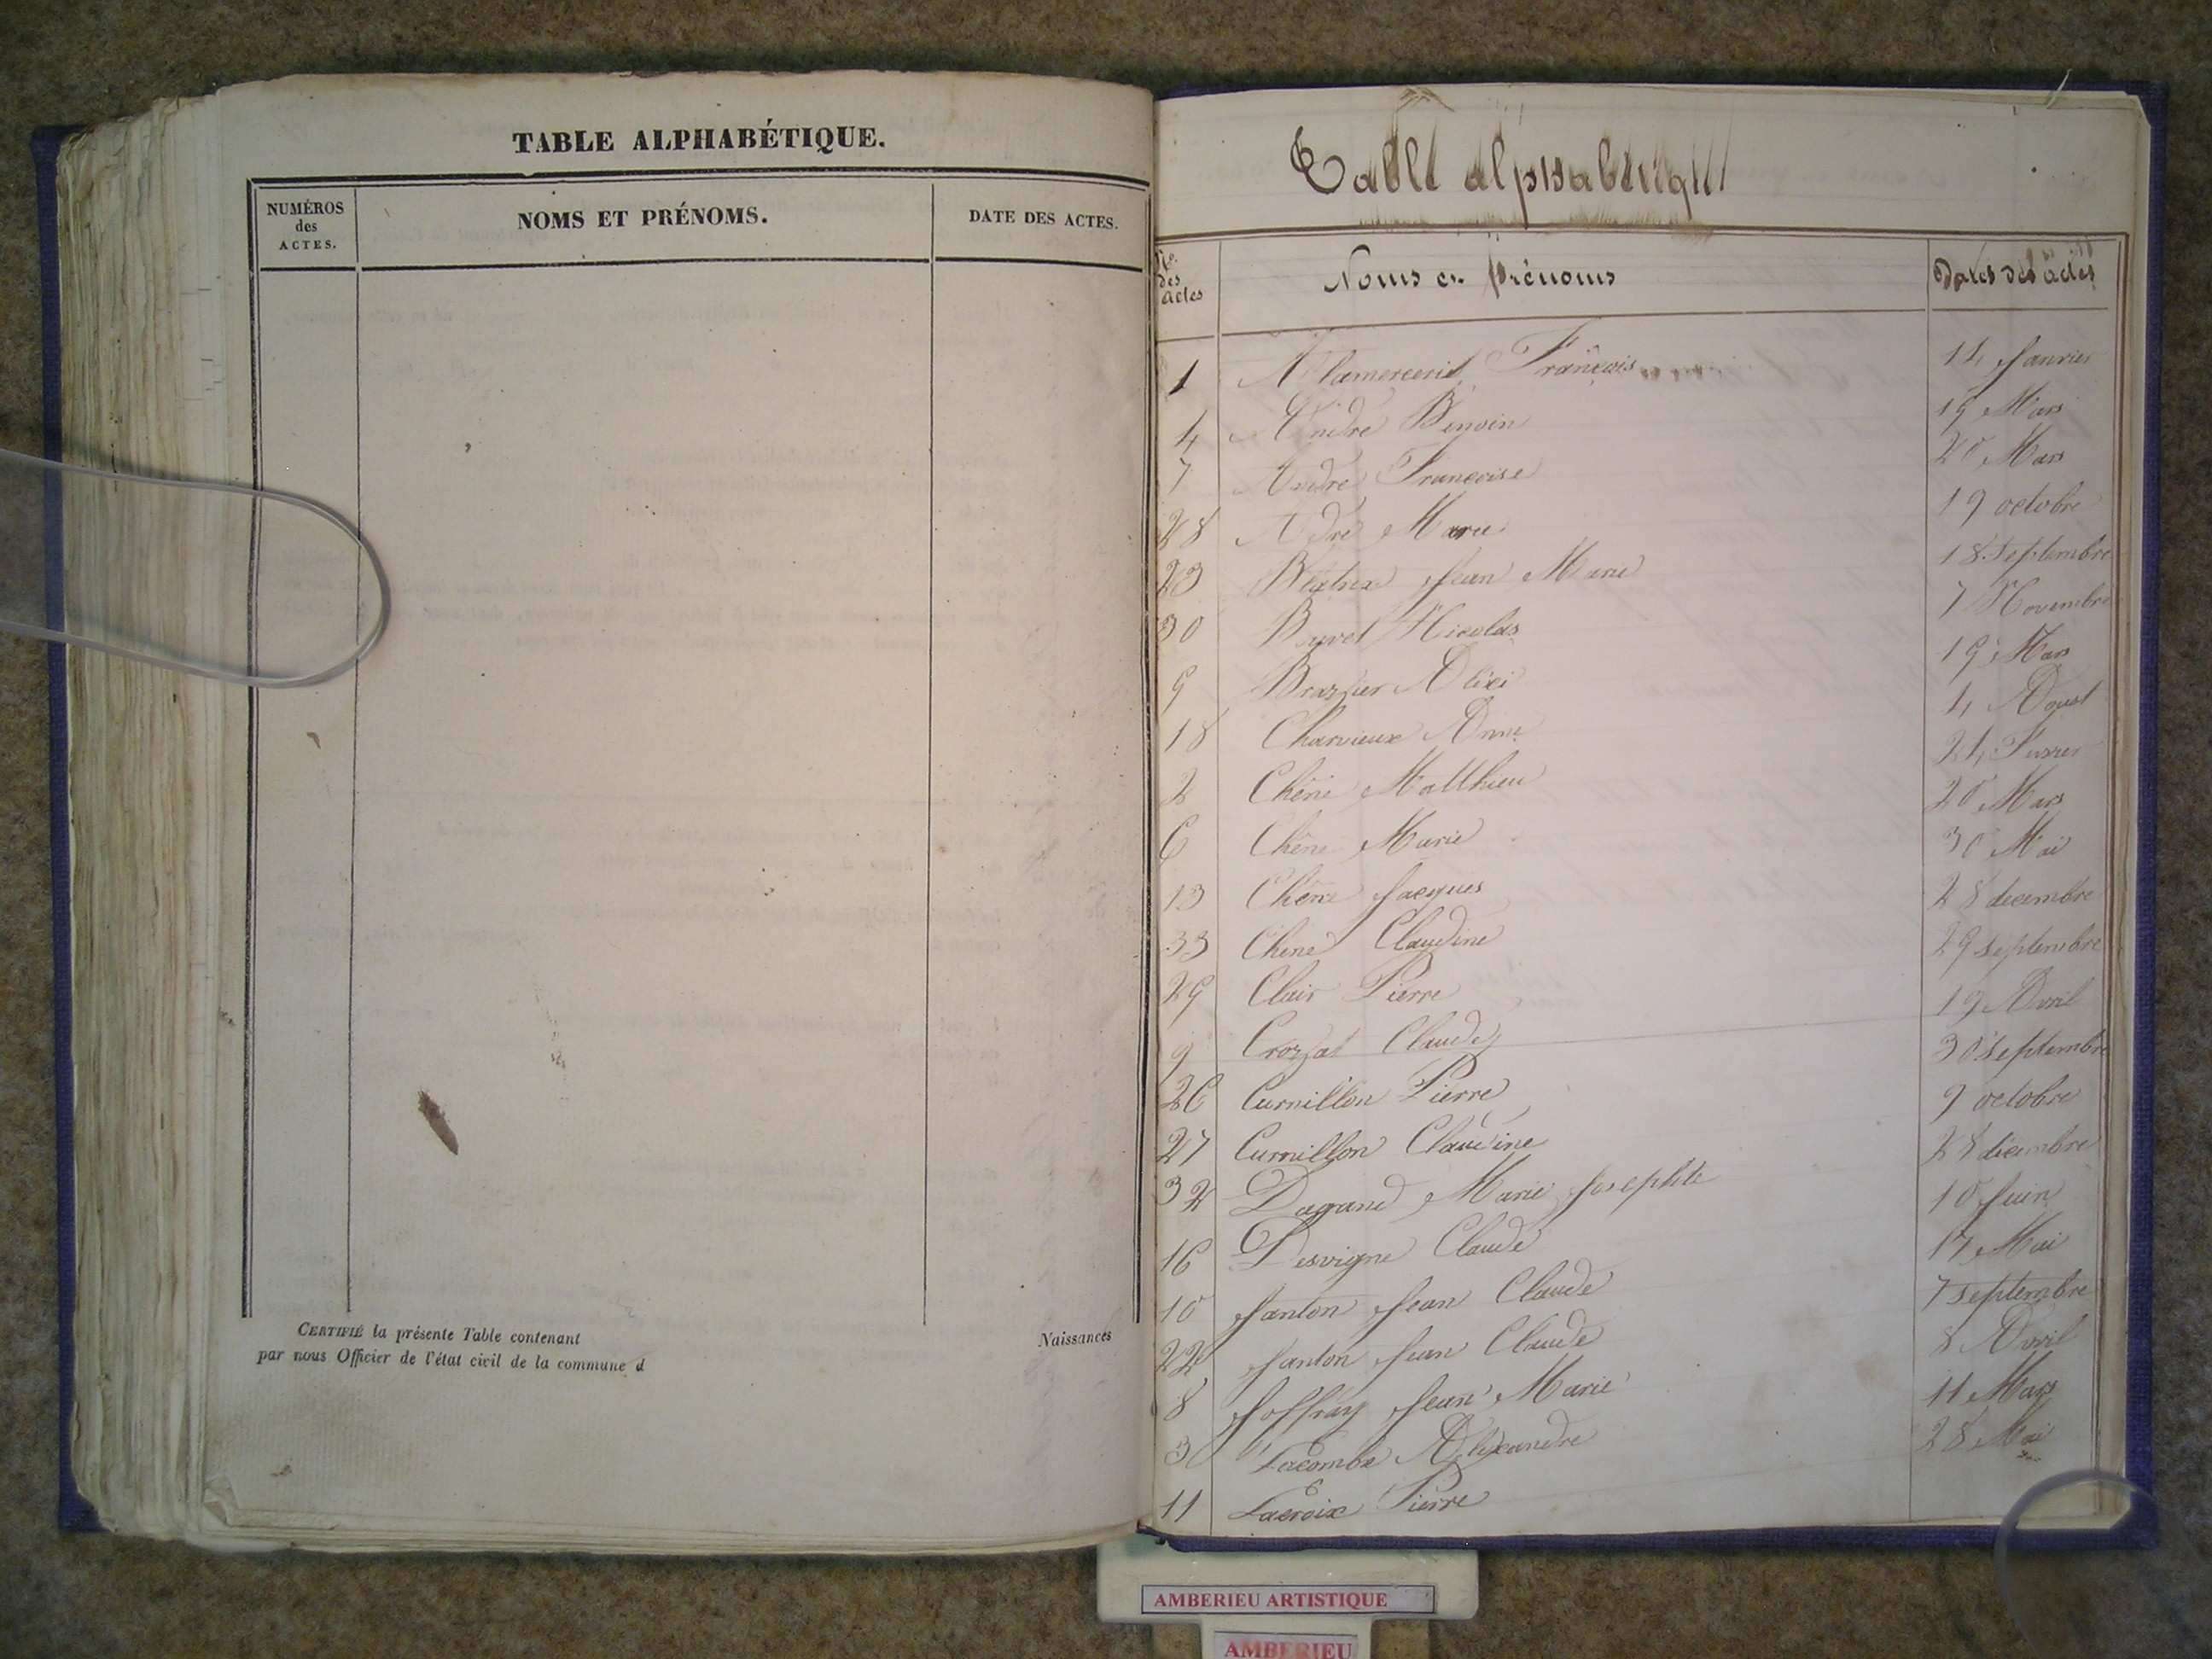 TABLE ALPHABÉTIQUE.
NUMÉROS
des
ACTES.
NOMS ET PRÉNOMS.
DATE DES ACTES.
CERTIFIÉ la présente Table contenant
par nous Officier de l'état civil de la commune d
Naissances
Table alphabetique
Nos
des
actes
Noms et prénoms
Dates des actes
1 François 14 Janvier
4 André Benoin 19 Mars
7 André Francoise 20 Mars
28 Adré Marie 19 octobre
23 Jean Marie 18 septembre
30 Buvet Nicolas 7 Novembre
9 Brazier Alixi 19 Mars
18 Charvieux Anne 4 Aoust
2 Chêne Matthieu 24
6 Chêne Marie 20 Mars
13 Chêne Jacques 30 Mai
33 Chene Claudine 28 decembre
29 Clair Pierre 29 septembre
9 Crozat Claude 19 Avril
26 Curnillon Pierre 30 septembre
27 Curnillon Claudine 9 octobre
32 Dagrand Marie Josephte 28 décembre
16 Desvigne Claude 10 Juin
10 Janton Jean Claude 17 Mai
22 Janton Jean Claude 7 septembre
8 Joffray Jean Marie 8 Avril
3 Lacombe Alexandre 11 Mars
11 Lacroix Pierre 28 Mai
AMBERIEU ARTISTIQUE
AMBERIEU